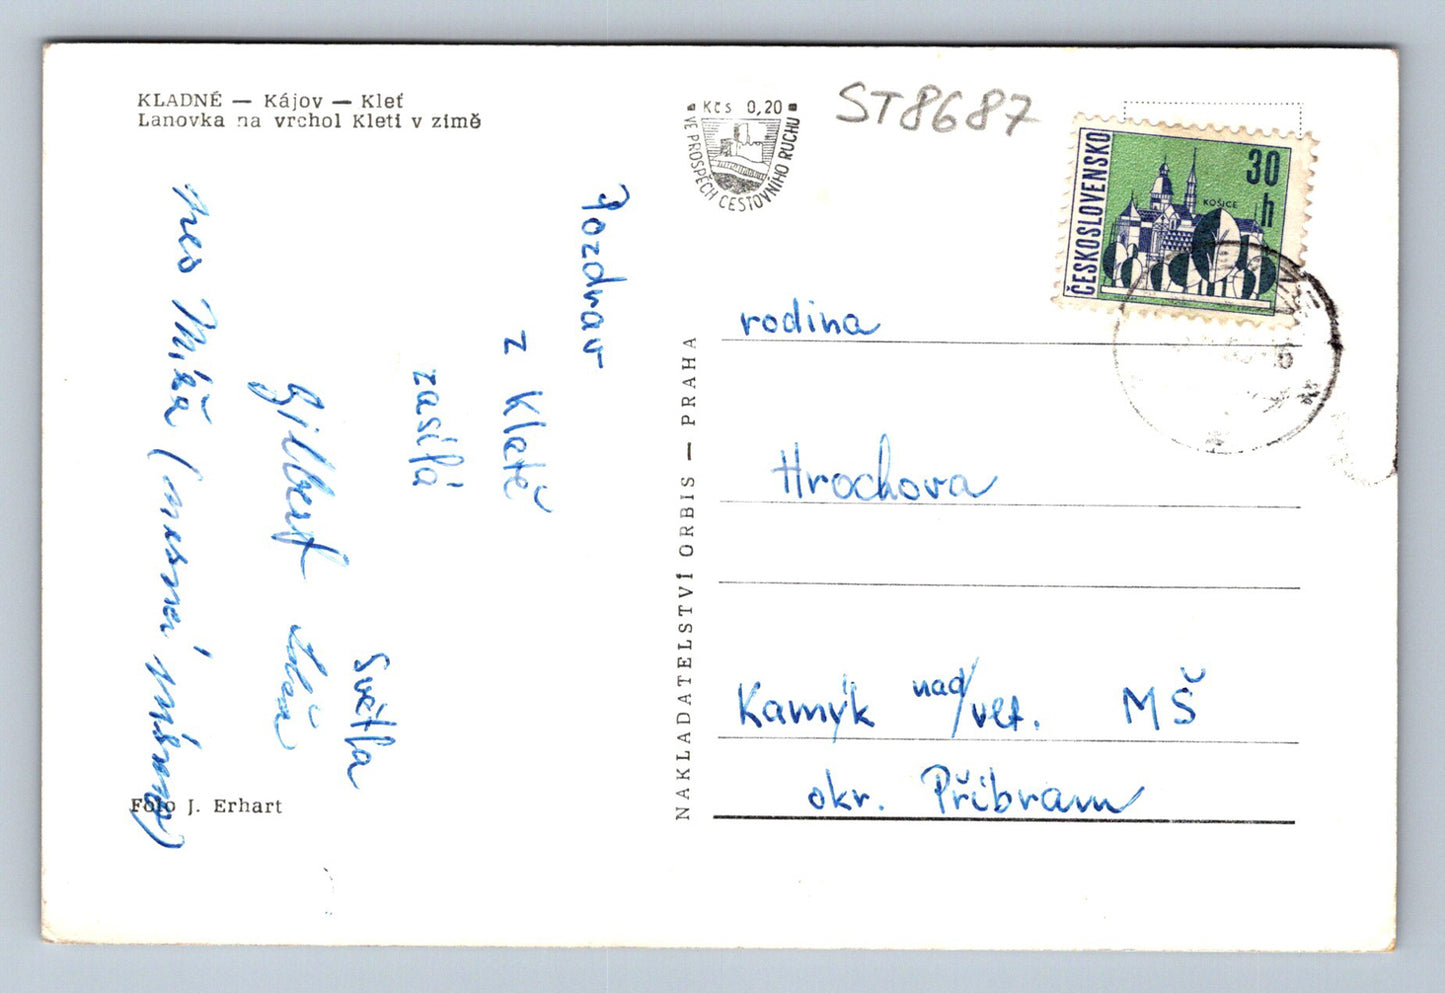 KLADNÉ — Kájov — Kleť
Lanovka na vrchol Kleti v zimě
Kčs 0,20
VE PROSPĚCH CESTOVNÍHO RUCHU
ST8687
ČESKOSLOVENSKO
30 h
KOŠICE
Pozdrav
z Kletě
zasílá
Světla
Gilbert
NAKLADATELSTVÍ ORBIS — PRAHA
rodina
Hrochova
Kamýk nad/vlt. MŠ
okr. Příbram
Foto J. Erhart